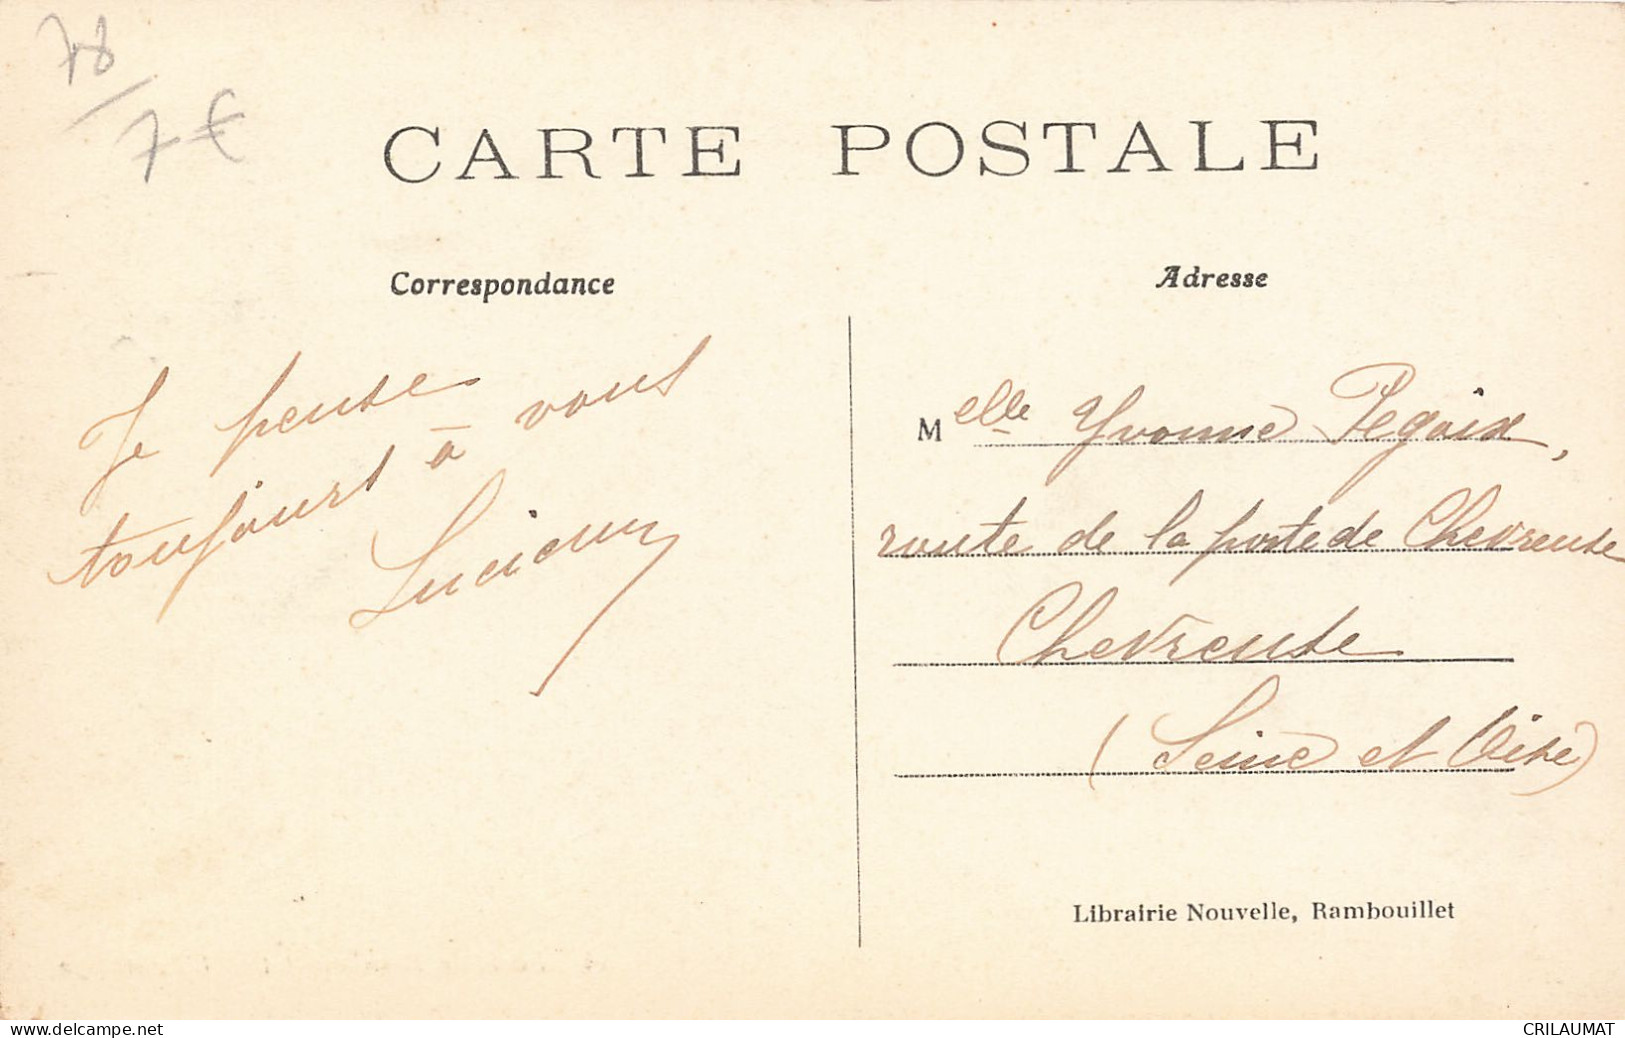 78
7€
CARTE POSTALE
Correspondance
Adresse
Je pense
toujours à vous
Lucien
Melle Yvonne Pegaix,
route de la porte de Chevreuse
Chevreuse
(Seine et Oise)
Librairie Nouvelle, Rambouillet
www.delcampe.net
CRILAUMAT